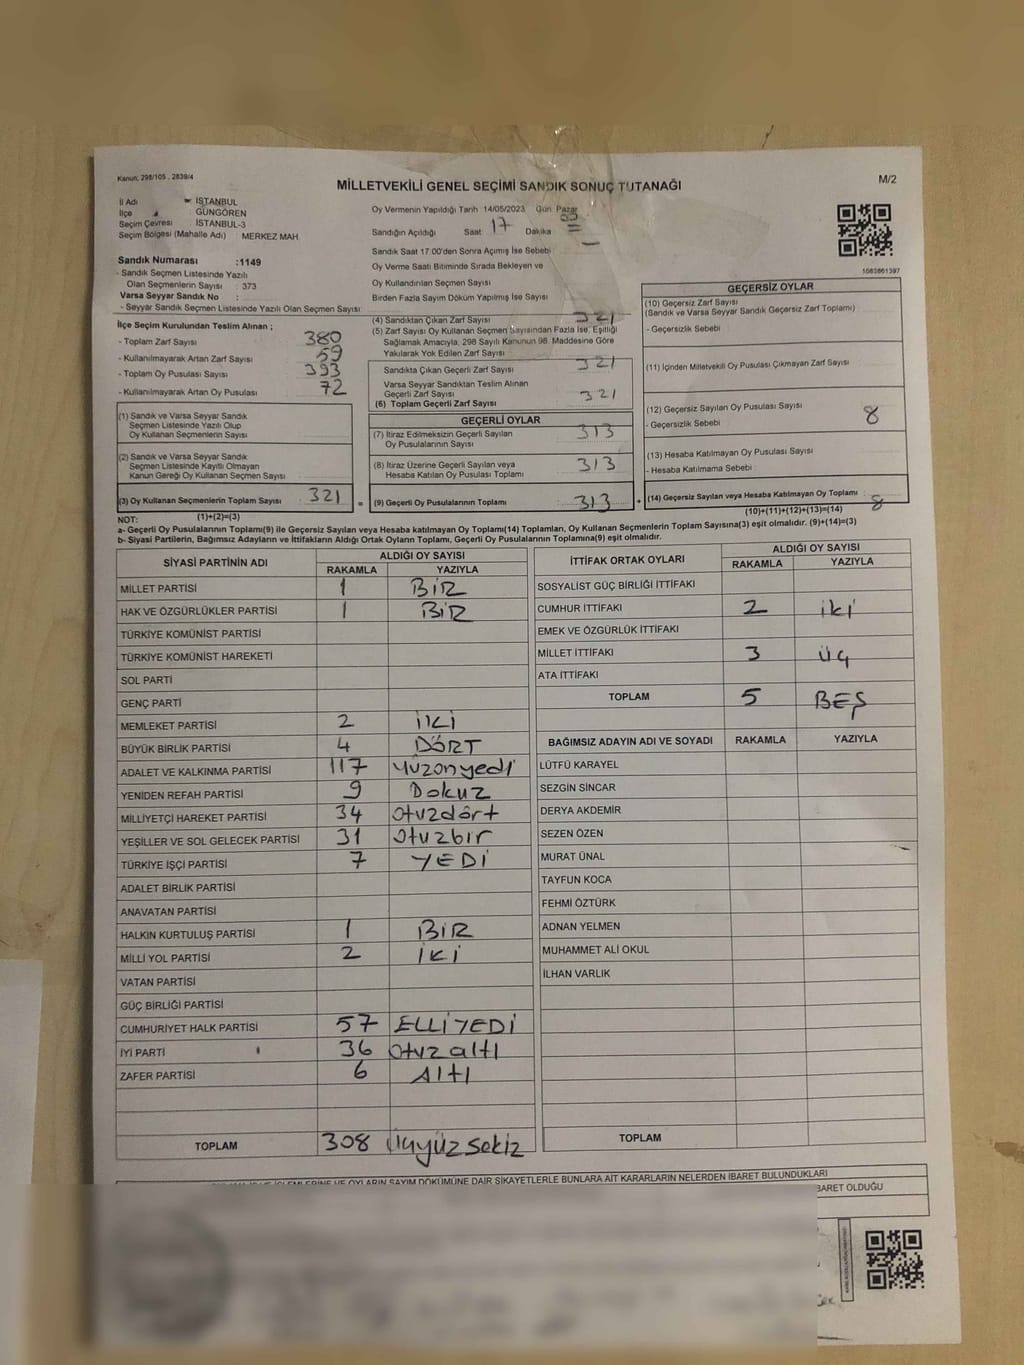 Kanun, 298/105 , 2839/4
MİLLETVEKİLİ GENEL SEÇİMİ SANDIK SONUÇ TUTANAĞI
M/2
İl Adı : İSTANBUL
İlçe : GÜNGÖREN
Seçim Çevresi : İSTANBUL-3
Seçim Bölgesi (Mahalle Adı) : MERKEZ MAH.
Oy Vermenin Yapıldığı Tarih 14/05/2023 Gün Pazar
Sandığın Açıldığı Saat 17 Dakika
Sandık Saat 17:00'den Sonra Açımış İse Sebebi
Oy Verme Saati Bitiminde Sırada Bekleyen ve
Oy Kullandırılan Seçmen Sayısı
Birden Fazla Sayım Döküm Yapılmış İse Sayısı
Sandık Numarası :1149
- Sandık Seçmen Listesinde Yazılı
Olan Seçmenlerin Sayısı : 373
Varsa Seyyar Sandık No :
- Seyyar Sandık Seçmen Listesinde Yazılı Olan Seçmen Sayısı
İlçe Seçim Kurulundan Teslim Alınan ;
- Toplam Zarf Sayısı 380
- Kullanılmayarak Artan Zarf Sayısı 59
- Toplam Oy Pusulası Sayısı 393
- Kullanılmayarak Artan Oy Pusulası 72
(1) Sandık ve Varsa Seyyar Sandık
Seçmen Listesinde Yazılı Olup
Oy Kullanan Seçmenlerin Sayısı
(2) Sandık ve Varsa Seyyar Sandık
Seçmen Listesinde Kayıtlı Olmayan
Kanun Gereği Oy Kullanan Seçmen Sayısı
(3) Oy Kullanan Seçmenlerin Toplam Sayısı 321
(1)+(2)=(3)
(4) Sandıktan Çıkan Zarf Sayısı 321
(5) Zarf Sayısı Oy Kullanan Seçmen Sayısından Fazla İse, Eşitliği
Sağlamak Amacıyla, 298 Sayılı Kanunun 98. Maddesine Göre
Yakılarak Yok Edilen Zarf Sayısı
Sandıkta Çıkan Geçerli Zarf Sayısı 321
Varsa Seyyar Sandıktan Teslim Alınan
Geçerli Zarf Sayısı
(6) Toplam Geçerli Zarf Sayısı 321
GEÇERLİ OYLAR
(7) İtiraz Edilmeksizin Geçerli Sayılan
Oy Pusulalarının Sayısı 313
(8) İtiraz Üzerine Geçerli Sayılan veya
Hesaba Katılan Oy Pusulası Toplamı 313
= (9) Geçerli Oy Pusulalarının Toplamı 313 +
1083861397
GEÇERSİZ OYLAR
(10) Geçersiz Zarf Sayısı
(Sandık ve Varsa Seyyar Sandık Geçersiz Zarf Toplamı)
- Geçersizlik Sebebi
(11) İçinden Milletvekili Oy Pusulası Çıkmayan Zarf Sayısı
(12) Geçersiz Sayılan Oy Pusulası Sayısı 8
- Geçersizlik Sebebi
(13) Hesaba Katılmayan Oy Pusulası Sayısı
- Hesaba Katılmama Sebebi
(14) Geçersiz Sayılan veya Hesaba Katılmayan Oy Toplamı : 8
(10)+(11)+(12)+(13)=(14)
NOT:
a- Geçerli Oy Pusulalarının Toplamı(9) ile Geçersiz Sayılan veya Hesaba katılmayan Oy Toplamı(14) Toplamları, Oy Kullanan Seçmenlerin Toplam Sayısına(3) eşit olmalıdır. (9)+(14)=(3)
b- Siyasi Partilerin, Bağımsız Adayların ve İttifakların Aldığı Ortak Oyların Toplamı, Geçerli Oy Pusulalarının Toplamına(9) eşit olmalıdır.
SİYASİ PARTİNİN ADI ALDIĞI OY SAYISI
RAKAMLA YAZIYLA
MİLLET PARTİSİ 1 BİR
HAK VE ÖZGÜRLÜKLER PARTİSİ 1 BİR
TÜRKİYE KOMÜNİST PARTİSİ
TÜRKİYE KOMÜNİST HAREKETİ
SOL PARTİ
GENÇ PARTİ
MEMLEKET PARTİSİ 2 İKİ
BÜYÜK BİRLİK PARTİSİ 4 DÖRT
ADALET VE KALKINMA PARTİSİ 117 Yüzonyedi
YENİDEN REFAH PARTİSİ 9 Dokuz
MİLLİYETÇİ HAREKET PARTİSİ 34 Otuzdört
YEŞİLLER VE SOL GELECEK PARTİSİ 31 Otuzbir
TÜRKİYE İŞÇİ PARTİSİ 7 YEDİ
ADALET BİRLİK PARTİSİ
ANAVATAN PARTİSİ
HALKIN KURTULUŞ PARTİSİ 1 BİR
MİLLİ YOL PARTİSİ 2 İKİ
VATAN PARTİSİ
GÜÇ BİRLİĞİ PARTİSİ
CUMHURİYET HALK PARTİSİ 57 ELLİYEDİ
İYİ PARTİ 36 Otuzaltı
ZAFER PARTİSİ 6 Altı
TOPLAM 308 Üçyüzsekiz
İTTİFAK ORTAK OYLARI ALDIĞI OY SAYISI
RAKAMLA YAZIYLA
SOSYALİST GÜÇ BİRLİĞİ İTTİFAKI
CUMHUR İTTİFAKI 2 iki
EMEK VE ÖZGÜRLÜK İTTİFAKI
MİLLET İTTİFAKI 3 Üç
ATA İTTİFAKI
TOPLAM 5 BEŞ
BAĞIMSIZ ADAYIN ADI VE SOYADI RAKAMLA YAZIYLA
LÜTFÜ KARAYEL
SEZGİN SİNCAR
DERYA AKDEMİR
SEZEN ÖZEN
MURAT ÜNAL
TAYFUN KOCA
FEHMİ ÖZTÜRK
ADNAN YELMEN
MUHAMMET ALİ OKUL
İLHAN VARLIK
TOPLAM
İŞLEMLERİNE VE OYLARIN SAYIM DÖKÜMÜNE DAİR ŞİKAYETLERLE BUNLARA AİT KARARLARIN NELERDEN İBARET BULUNDUKLARI
BARET OLDUĞU